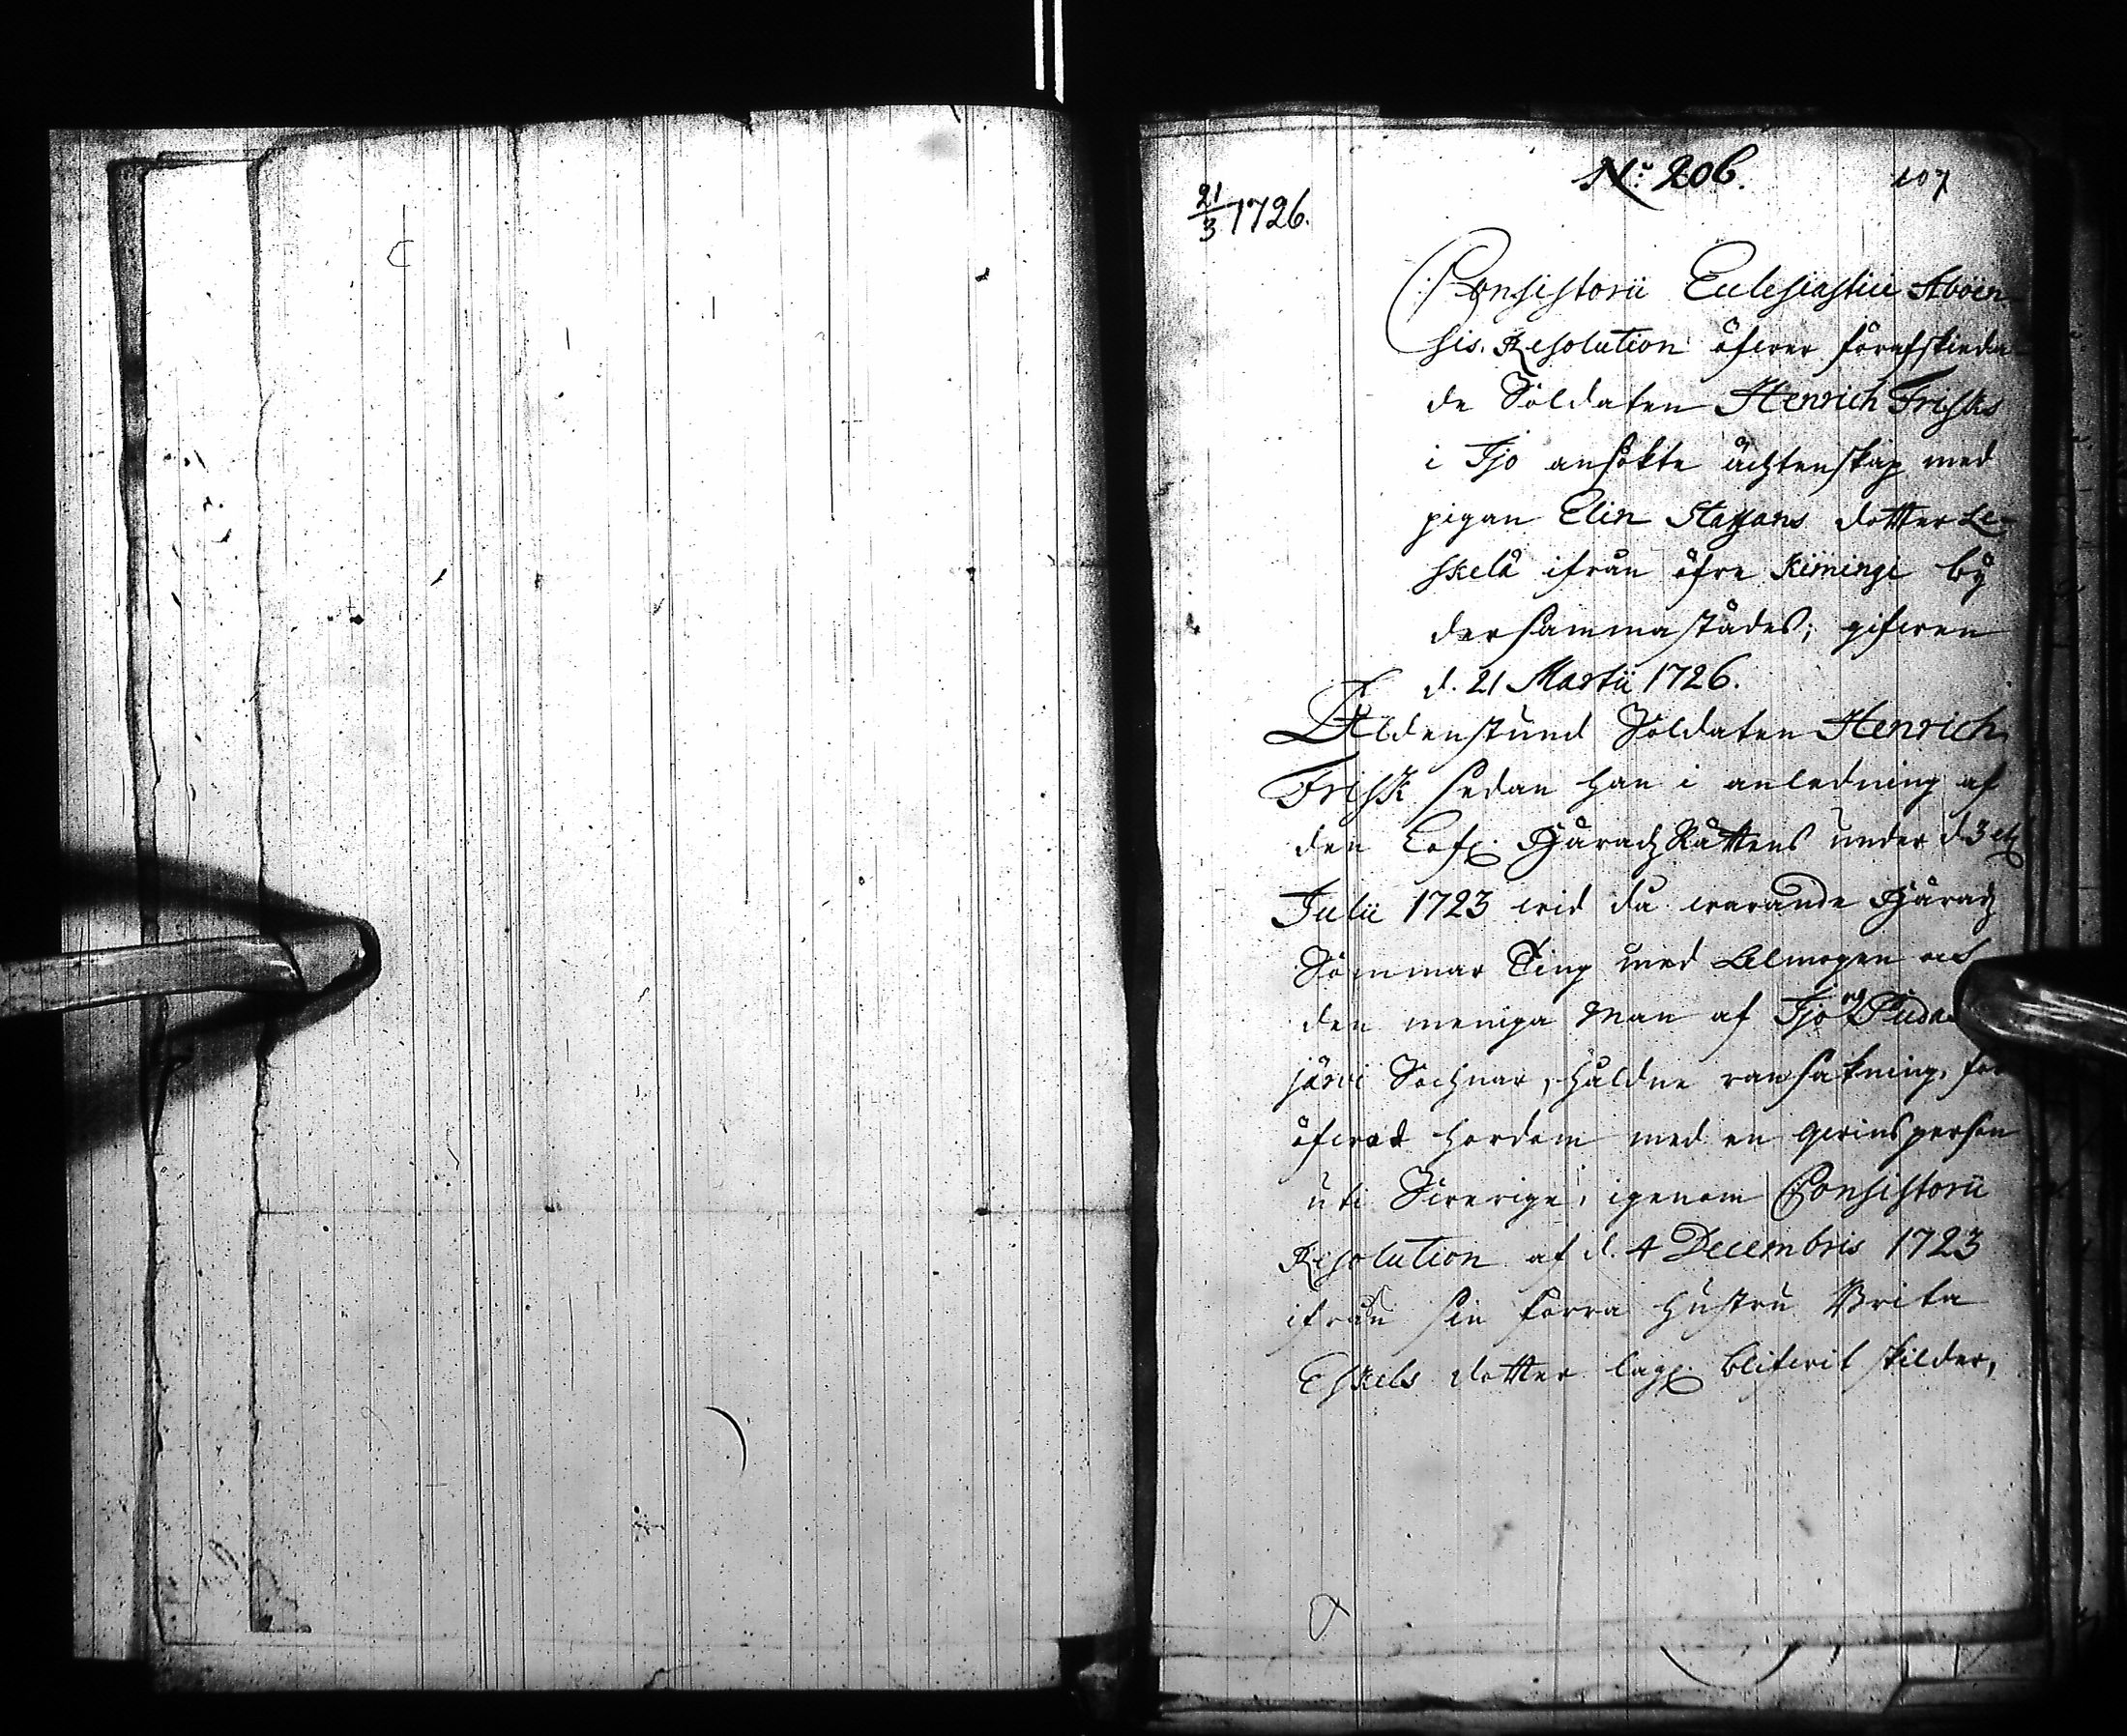 N:o 206.
107
21/3 1726.
Consistorii Ecclesiastici Aboën-
sis. Resolution öfwer förafskieda-
de Soldaten Henrich Frisks
i Ijo ansökte ächtenskap med
pigan Elin Staffans dotter Le-
skelä ifrån öfre Kiminge by
dersammastädes; gifwen
d. 21 Martii 1726.
Aldenstund Soldaten Henrich
Frisk sedan han i anledning af
den Lofl. HäradzRättens under d. 3
Julii 1723 wid då warande Häradz
Sommar Ting med Almogen och
den meniga Man af Ijo och Pudas
järvi Sochnar, håldne ransakning, för
öfwad hordom med en qwinsperson
uti Swerige, igenom Consistorii
Resolution af d. 4 Decembris 1723
ifrån sin förra hustru Brita
Eskels dotter lagl. blifwit skilder,